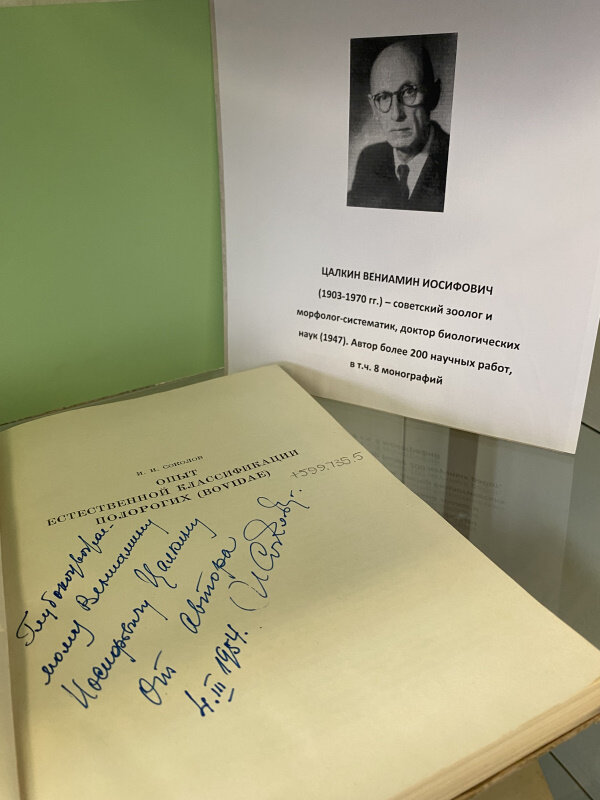 ЦАЛКИН ВЕНИАМИН ИОСИФОВИЧ
(1903-1970 гг.) – советский зоолог и
морфолог-систематик, доктор биологических
наук (1947). Автор более 200 научных работ,
в т.ч. 8 монографий
И. И. СОКОЛОВ
ОПЫТ
ЕСТЕСТВЕННОЙ КЛАССИФИКАЦИИ
ПОЛОРОГИХ (BOVIDAE)
+599.735.5
Глубокоуважае-
мому Вениамину
Иосифовичу Цалкину
От автора
4.III 1954.